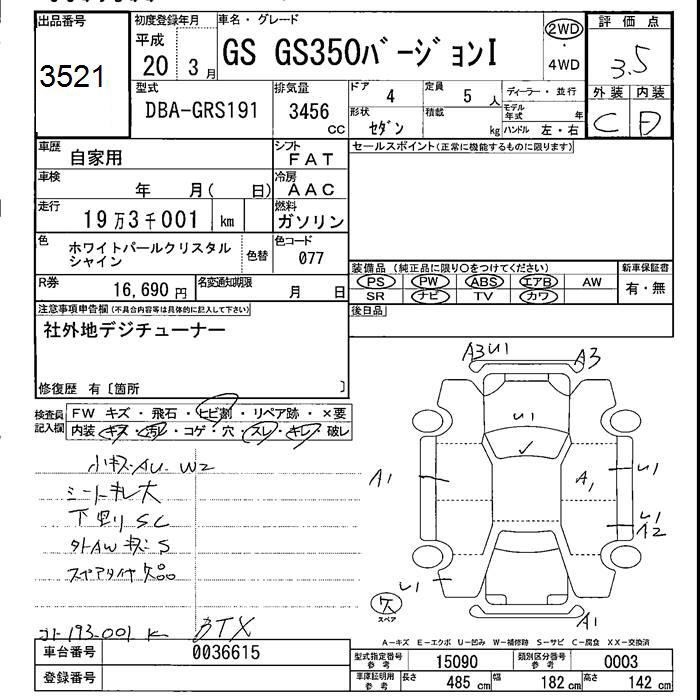 出品番号
3521
初度登録年月
平成
20 3月
車名・グレード
GS GS350バージョンI
2WD
・
4WD
評価点
3.5
型式
DBA-GRS191
排気量
3456
cc
ドア 4
定員 5人
ディーラー・並行
モデル年式 年
形状
セダン
積載
kg
ハンドル 左・右
外装 内装
C D
車歴
自家用
シフト
FAT
セールスポイント(正常に機能するものに限ります)
車検
年 月( 日)
冷房
AAC
走行
19万3千001 km
燃料
ガソリン
色
ホワイトパールクリスタル
シャイン
色替
色コード
077
装備品(純正品に限り○をつけてください)
新車保証書
PS PW ABS エアB AW
有・無
SR ナビ TV カワ
R券
16,690円
名変通知期限
月 日
後日品
注意事項申告欄(不具合内容等は具体的に記入して下さい)
社外地デジチューナー
修復歴 有〔箇所 〕
検査員
記入欄
FW キズ・飛石・ヒビ割・リペア跡・×要
内装 キズ・汚れ・コゲ・穴・スレ・キレ・破レ
小キズ AU W2
シートキレ大
下廻り SC
外AWキズ S
スペアタイヤ欠品
193-001 K
A3 U1
A3
U1
A1
A1
U1
U1
A2
U1
A1
欠
スペア
A-キズ E-エクボ U-凹み W-補修跡 S-サビ C-腐食 XX-交換済
車台番号
0036615
登録番号
型式指定番号
参考
15090
類別区分番号
参考
0003
車庫証明用
参考
長さ 485cm
幅 182cm
高さ 142cm